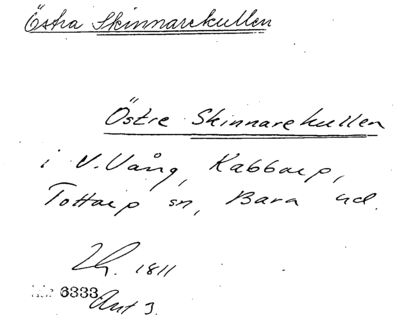 Östra Skinnarekullen
Östre Skinnarekullen
i V. Vång, Kabbarp,
Tottarp sn, Bara hd.
Lh. 1811
6333
Ant 3.